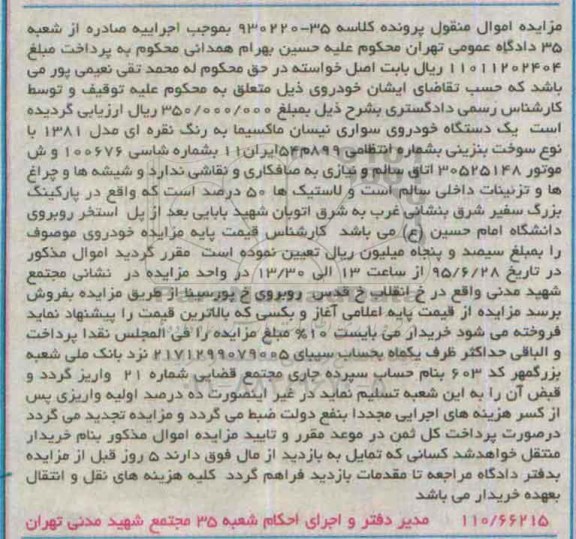 مزایده اموال منقول پرونده کلاسه ۳۵-۹۳۰۲۲۰ بموجب اجراییه صادره از شعبه
۳۵ دادگاه عمومی تهران محکوم علیه حسین بهرام همدانی محکوم به پرداخت مبلغ
۱۱۰۱۱۲۰۲۴۰۴ ریال بابت اصل خواسته در حق محکوم له محمد تقی نعیمی پور می
باشد که حسب تقاضای ایشان خودروی ذیل متعلق به محکوم علیه توقیف و توسط
کارشناس رسمی دادگستری بشرح ذیل بمبلغ ۳۵۰/۰۰۰/۰۰۰ ریال ارزیابی گردیده
است یک دستگاه خودروی سواری نیسان ماکسیما به رنگ نقره ای مدل ۱۳۸۱ با
نوع سوخت بنزینی بشماره انتظامی ۸۹۹م۵۴ایران۱۱ بشماره شاسی ۱۰۰۶۷۶ و ش
موتور ۳۰۵۲۵۱۴۸ اتاق سالم و نیازی به صافکاری و نقاشی ندارد و شیشه ها و چراغ
ها و تزئینات داخلی سالم است و لاستیک ها ۵۰ درصد است که واقع در پارکینگ
بزرگ سفیر شرق بنشانی غرب به شرق اتوبان شهید بابایی بعد از پل استخر روبروی
دانشگاه امام حسین (ع) می باشد کارشناس قیمت پایه مزایده خودروی موصوف
را بمبلغ سیصد و پنجاه میلیون ریال تعیین نموده است مقرر گردید اموال مذکور
در تاریخ ۹۵/۶/۲۸ از ساعت ۱۳ الی ۱۳/۳۰ در واحد مزایده در نشانی مجتمع
شهید مدنی واقع در خ انقلاب خ قدس روبروی خ پورسینا از طریق مزایده بفروش
برسد مزایده از قیمت پایه اعلامی آغاز و بکسی که بالاترین قیمت را پیشنهاد نماید
فروخته می شود خریدار می بایست ۱۰% مبلغ مزایده را فی المجلس نقدا پرداخت
و الباقی حداکثر ظرف یکماه بحساب سیبای ۲۱۷۱۲۹۹۰۷۹۰۰۵ نزد بانک ملی شعبه
بزرگمهر کد ۶۰۳ بنام حساب سپرده جاری مجتمع قضایی شماره ۲۱ واریز گردد و
قبض آن را به این شعبه تسلیم نماید در غیر اینصورت ده درصد اولیه واریزی پس
از کسر هزینه های اجرایی مجددا بنفع دولت ضبط می گردد و مزایده تجدید می گردد
درصورت پرداخت کل ثمن در موعد مقرر و تایید مزایده اموال مذکور بنام خریدار
منتقل خواهدشد کسانی که تمایل به بازدید از مال فوق دارند ۵ روز قبل از مزایده
بدفتر دادگاه مراجعه تا مقدمات بازدید فراهم گردد کلیه هزینه های نقل و انتقال
بعهده خریدار می باشد
۱۱۰/۶۶۲۱۵ مدیر دفتر و اجرای احکام شعبه ۳۵ مجتمع شهید مدنی تهران